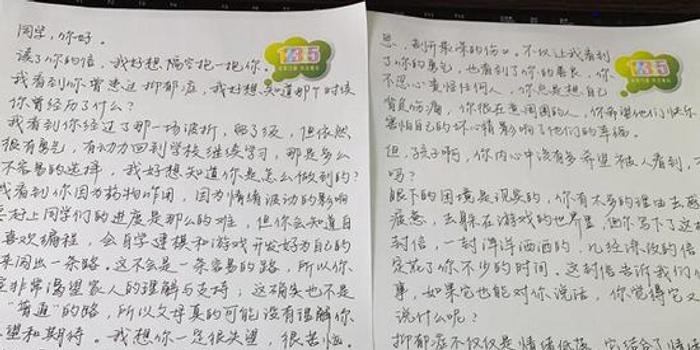 同学，你好。
读了你的信，我好想隔空抱一抱你。
我看到你曾患过抑郁症，我好想知道那个时候
你曾经历了什么？
我看到你经过了那一场波折，留了级，但依然
很有勇气，有动力回到学校继续学习，那是多么
不容易的选择，我好想知道你是怎么做到的？
我看到你因为药物作用，因为情绪波动的影响
赶上同学们的进度是那么的难，但你会知道自
喜欢编程，会自学建模和游戏开发好为自己的
来闯出一条路。这不会是一条容易的路，所以你
非常渴望家人的理解与支持；这确实也不是
"普通"的路，所以父母真的可能没有理解你
望和期待。我想你一定很失望，很苦恼。
135
剖开最深的伤口。不仅让我看到
了你的勇气，也看到了你的善良，你
不忍心责怪任何人，你总是想自己
背负伤痛，你很在意周围的人，你希望他们快乐
害怕自己的坏心情影响了他们的幸福。
但，孩子啊，你内心中该有多希望被人看到，
吗？
眼下的困境是现实的，你有太多的理由去
疲惫，去躲在游戏的世界里，但你写下了这
封信，一封洋洋洒洒的、几经修改的信
定花了你不少的时间。这封信告诉我们
事，如果它也能对你说话，你觉得它
说什么呢？
抑郁症不仅仅是情绪低落，它结合了情绪
135